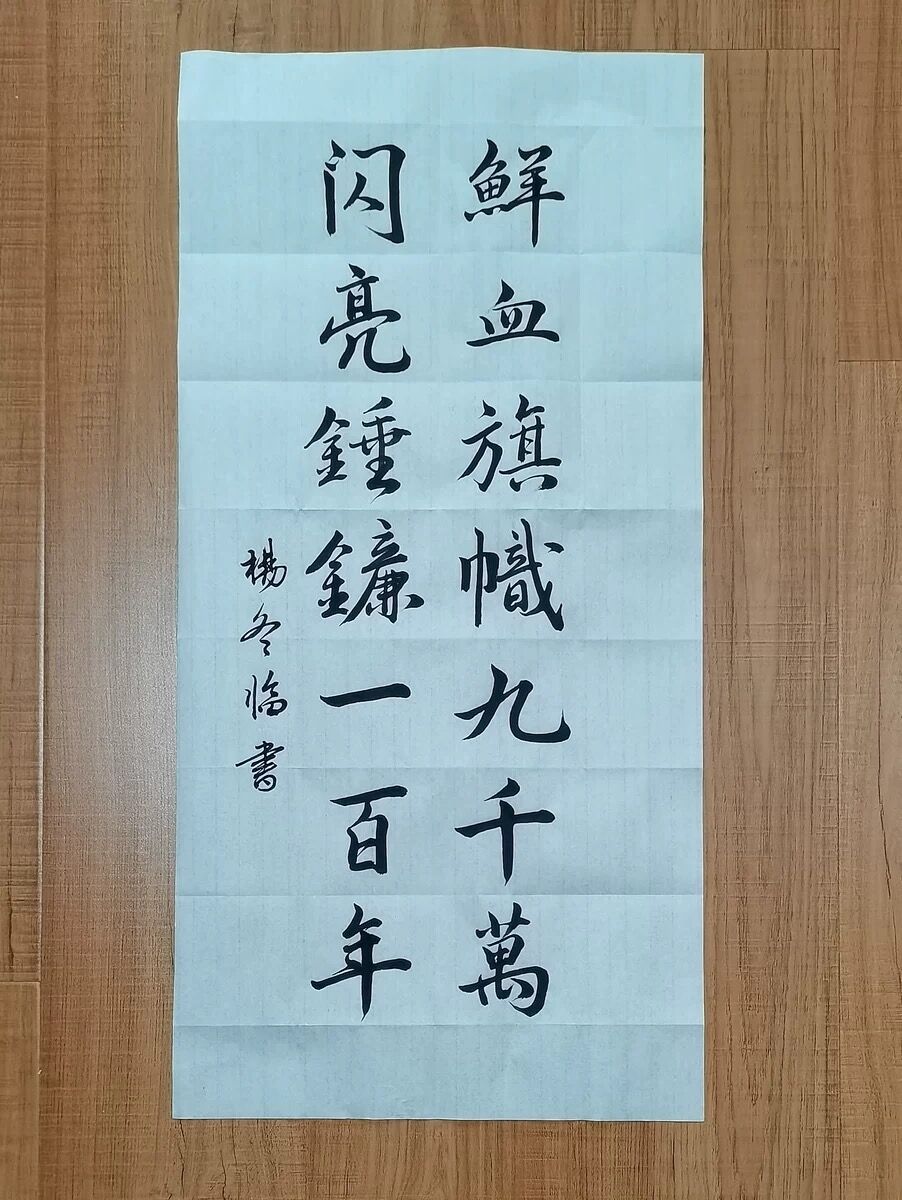 鮮血旗幟九千萬
闪亮錘鐮一百年
楊冬临書